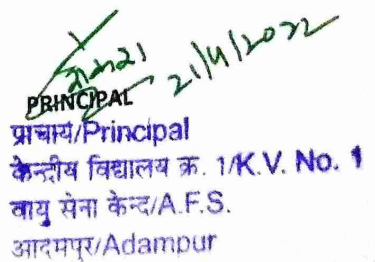 21/4/2022
PRINCIPAL
प्राचार्य/Principal
केन्द्रीय विद्यालय क्र. 1/K.V. No. 1
वायु सेना केन्द/A.F.S.
आदमपुर/Adampur